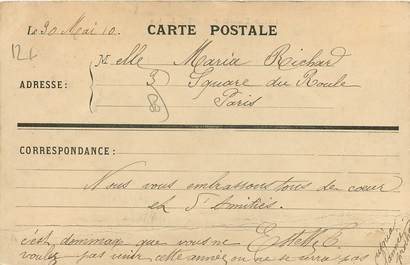 Le 30 Mai 10.
CARTE POSTALE
12 f
Melle Maria Richard
ADRESSE :
3 Square du Roule
Paris
CORRESPONDANCE :
Nous vous embrassons tous de cœur
et d'amitiés.
c'est dommage que vous ne
voulez pas venir cette année on ne se verra pas